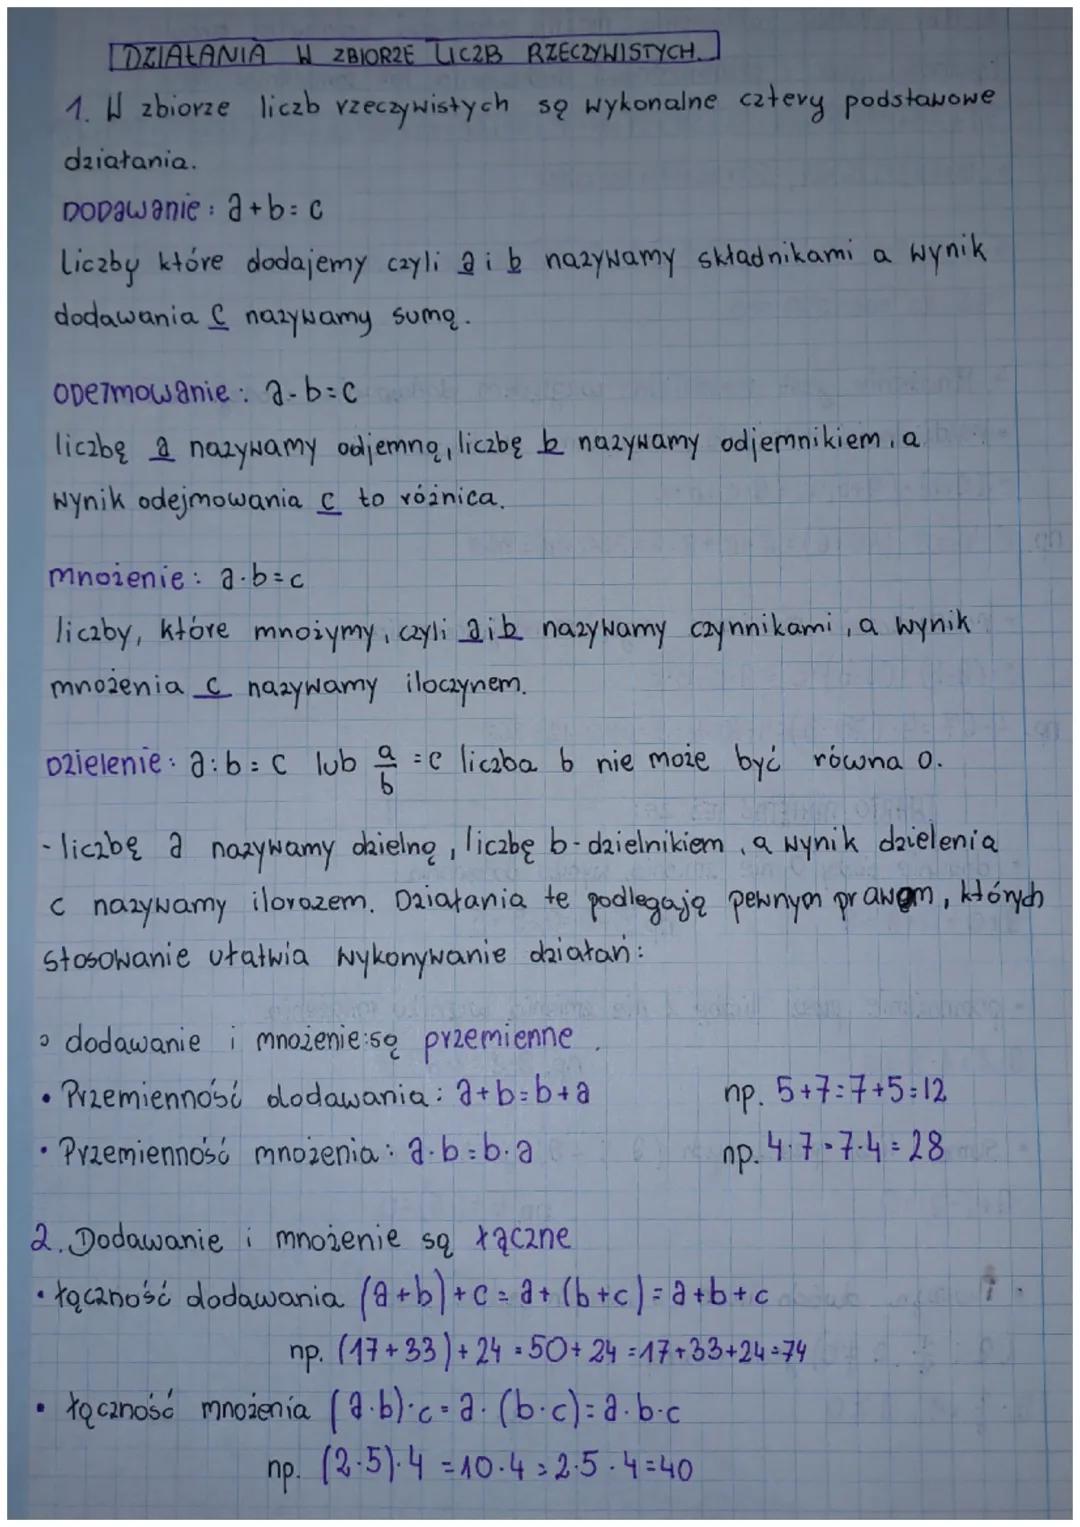 DZIAŁANIA W ZBIORZE LICZB RZECZYWISTYCH.
1. W zbiorze liczb rzeczywistych są wykonalne cztery podstawowe
działania.
DODawanie: a+b=c
Liczby które dodajemy czyli a i b nazywamy składnikami a wynik
dodawania c nazywamy sumą.
ODejmowanie: a-b=c
liczbę a nazywamy odjemną, liczbę b nazywamy odjemnikiem, a
wynik odejmowania c to różnica.
mnożenie: a·b=c
liczby, które mnożymy, czyli a i b nazywamy czynnikami, a wynik
mnożenia c nazywamy iloczynem.
Dzielenie: a:b=c lub a/b =c liczba b nie może być równa 0.
- liczbę a nazywamy dzielną, liczbę b-dzielnikiem, a wynik dzielenia
c nazywamy ilorazem. Działania te podlegają pewnym prawom, których
stosowanie ułatwia wykonywanie działań:
• dodawanie i mnożenie:są przemienne.
• Przemienność dodawania: a+b=b+a np. 5+7=7+5=12
• Przemienność mnożenia: a·b=b·a np. 4·7=7·4=28
2. Dodawanie i mnożenie są łączne
• łączność dodawania (a+b)+c=a+(b+c)=a+b+c
np. (17+33)+24=50+24=17+33+24=74
• łączność mnożenia (a·b)·c=a·(b·c)=a·b·c
np. (2·5)·4=10·4=2·5·4=40